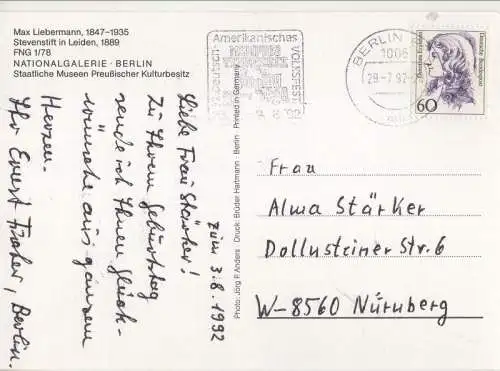 Max Liebermann, 1847-1935
Stevenstift in Leiden, 1889
FNG 1/78
NATIONALGALERIE · BERLIN
Staatliche Museen Preußischer Kulturbesitz
zum 3.8.1992
Liebe Frau Stärker!
Zu Ihrem Geburtstag
sende ich Ihnen Glück-
wünsche aus ganzem
Herzen.
Ihr Ernst Fraher, Berlin.
Photo: Jörg P. Anders · Druck: Brüder Hartmann · Berlin · Printed in Germany
Amerikanisches
VOLKSFEST
BERLIN
29-7.92
Deutsche Bundespost
60
Frau
Alma Stärker
Dollnsteiner Str. 6
W-8560 Nürnberg